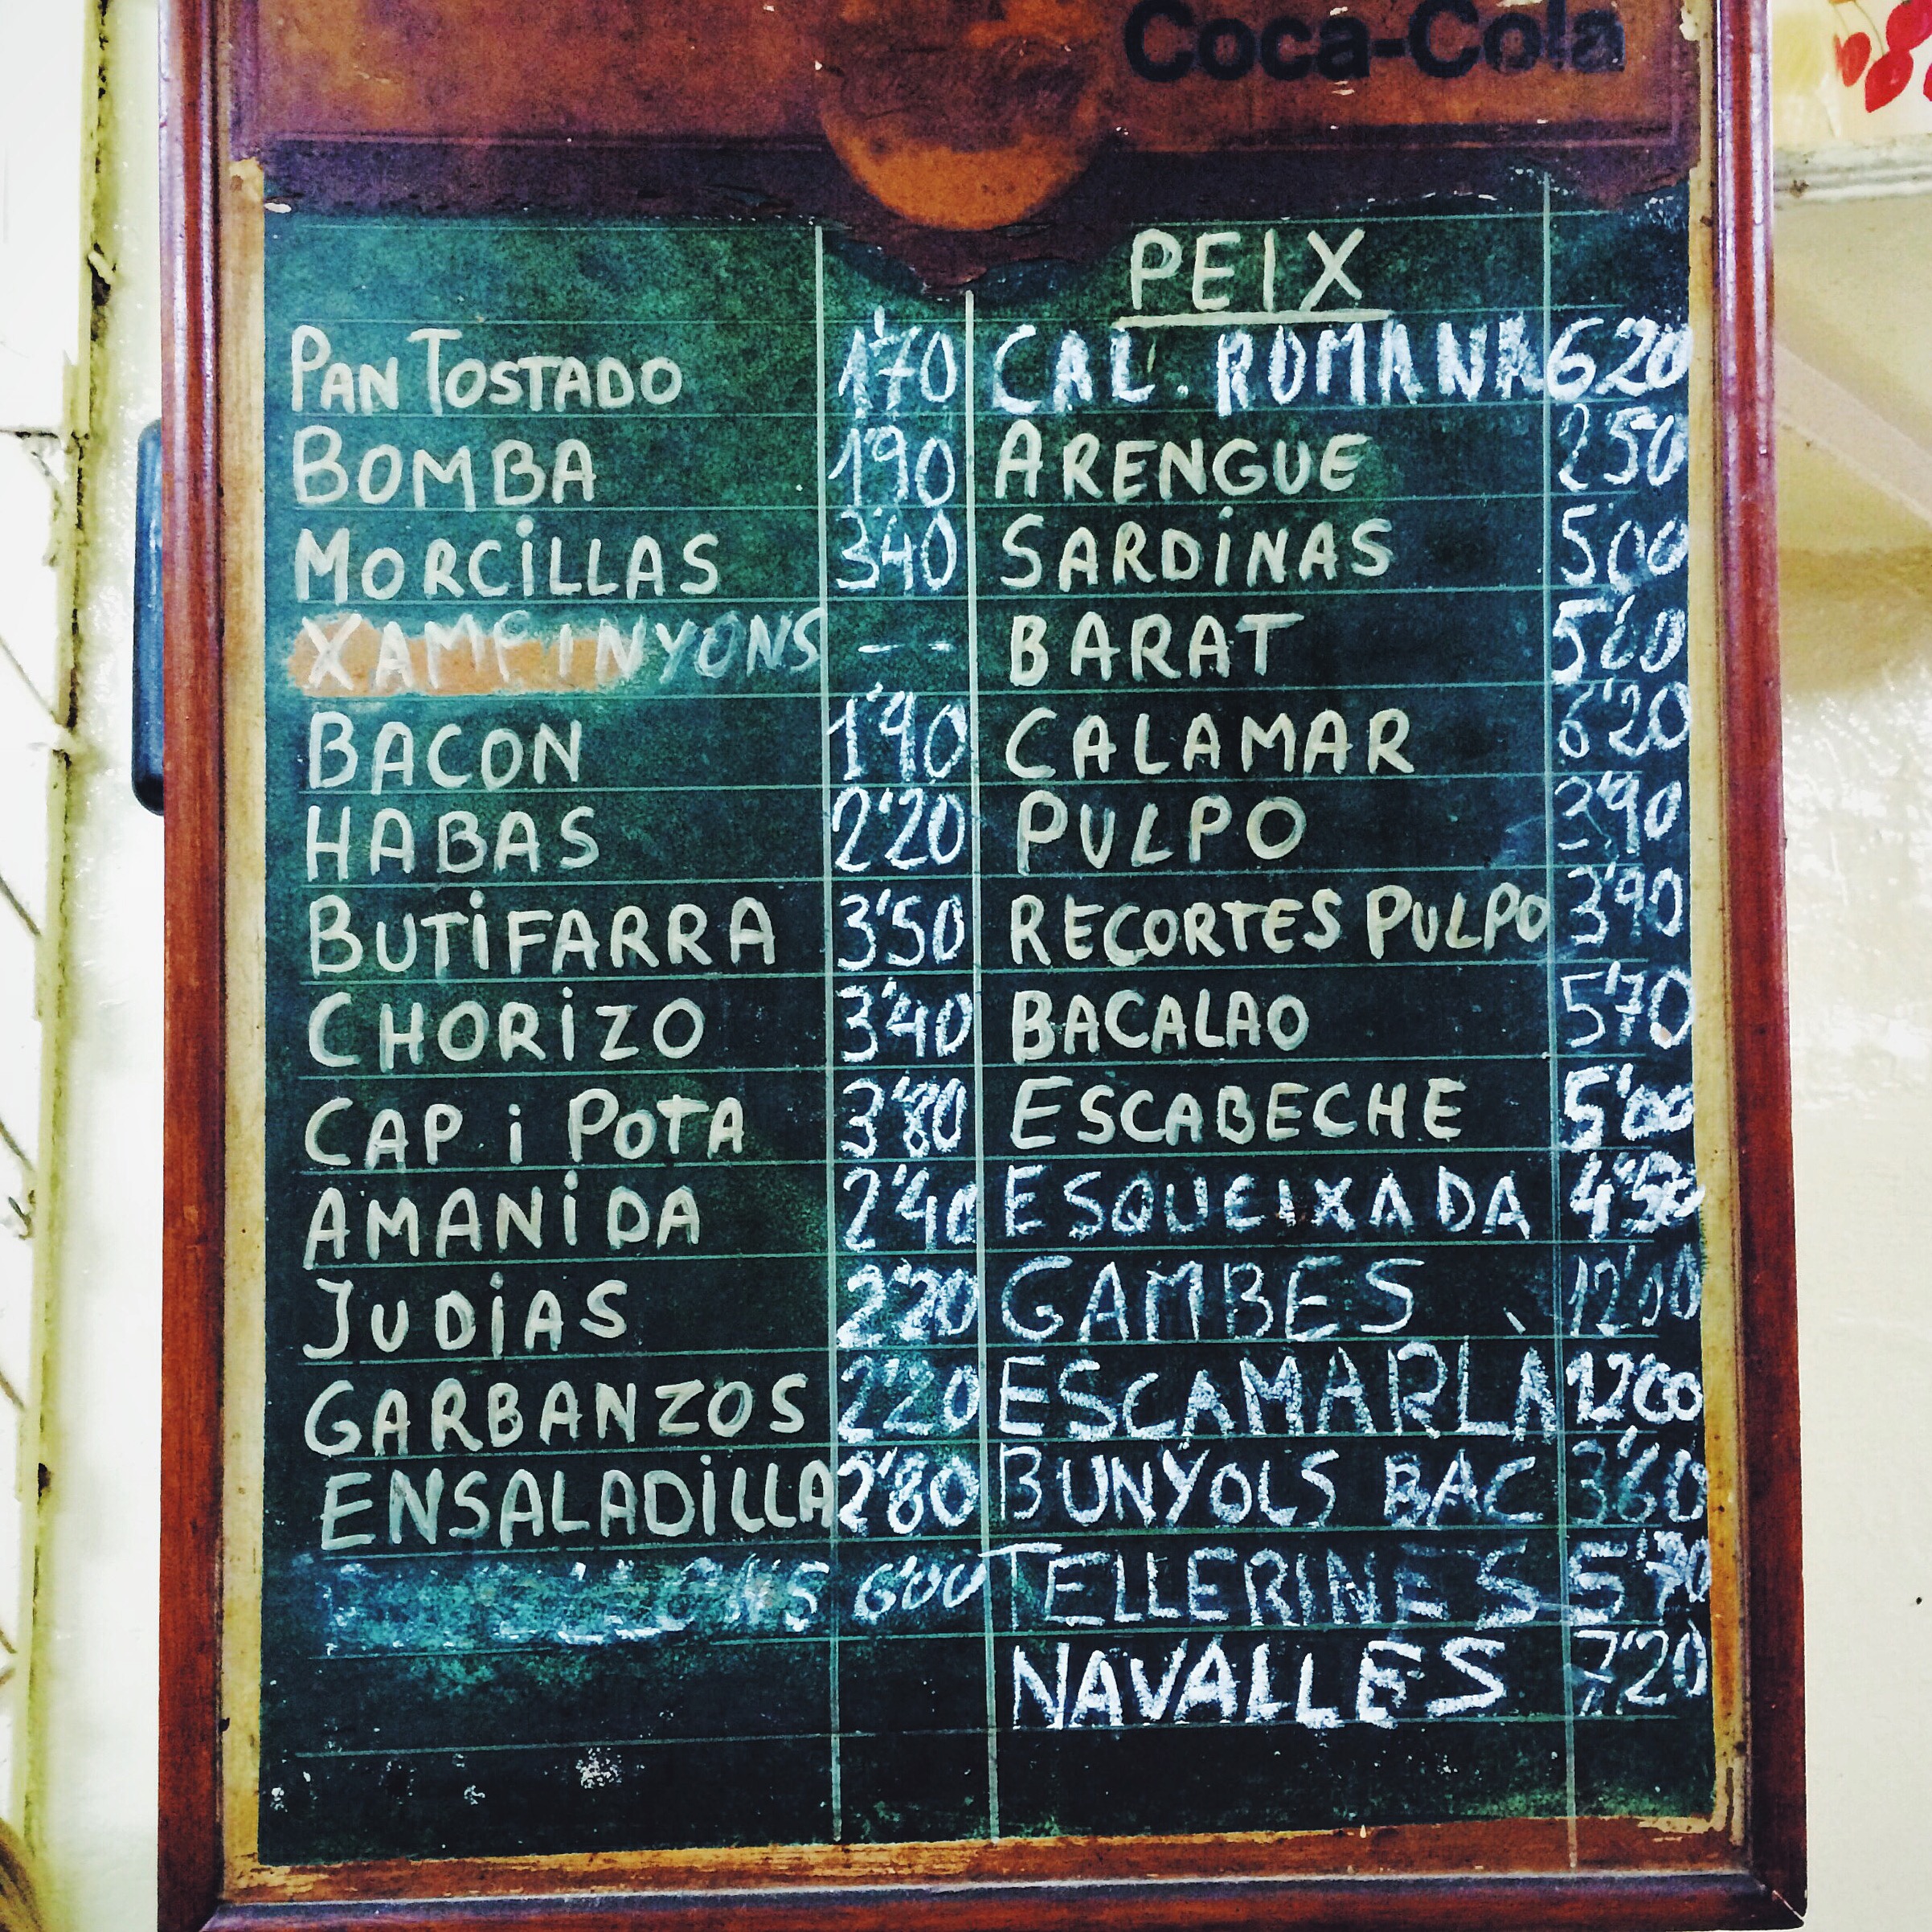 Coca-Cola
PEIX
PAN TOSTADO 1'70
BOMBA 1'90
MORCILLAS 3'40
XAMPINYONS --
BACON 1'90
HABAS 2'20
BUTIFARRA 3'50
CHORIZO 3'40
CAP i POTA 3'80
AMANIDA 2'40
JUDIAS 2'20
GARBANZOS 2'20
ENSALADILLA 2'80
6'00
CAL. ROMANA 6'20
ARENGUE 2'50
SARDINAS 5'00
BARAT 5'60
CALAMAR 6'20
PULPO 3'90
RECORTES PULPO 3'90
BACALAO 5'70
ESCABECHE 5'00
ESQUEIXADA 4'50
GAMBES 12'00
ESCAMARLÀ 12'00
BUNYOLS BAC 3'60
TELLERINES 5'70
NAVALLES 7'20